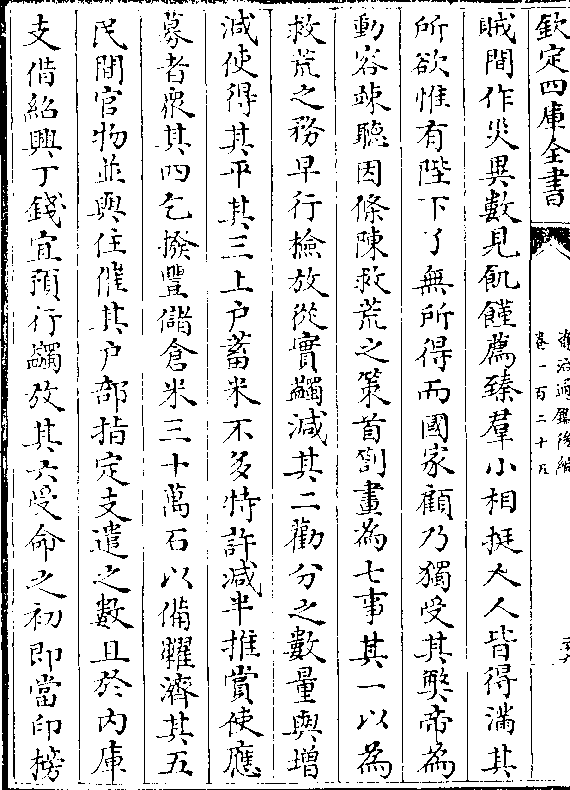 欽定四庫全書
資治通鑑後編
卷一百二十五
賊間作災異數見飢饉薦臻羣小相挻人人皆得滿其
所欲惟有陛下了無所得而國家顧乃獨受其弊帝爲
動容竦聽因條陳救荒之策首劄畫爲七事其一以爲
救荒之務早行檢放從實蠲減其二勸分之數量與增
減使得其平其三上户蓄米不多特許减半推賞使應
募者衆其四乞撥豐儲倉米三十萬石以備糶濟其五
民間官物並與住催其户部指定支遣之數且於内庫
支借紹興丁錢宜預行蠲放其六受命之初即當印榜